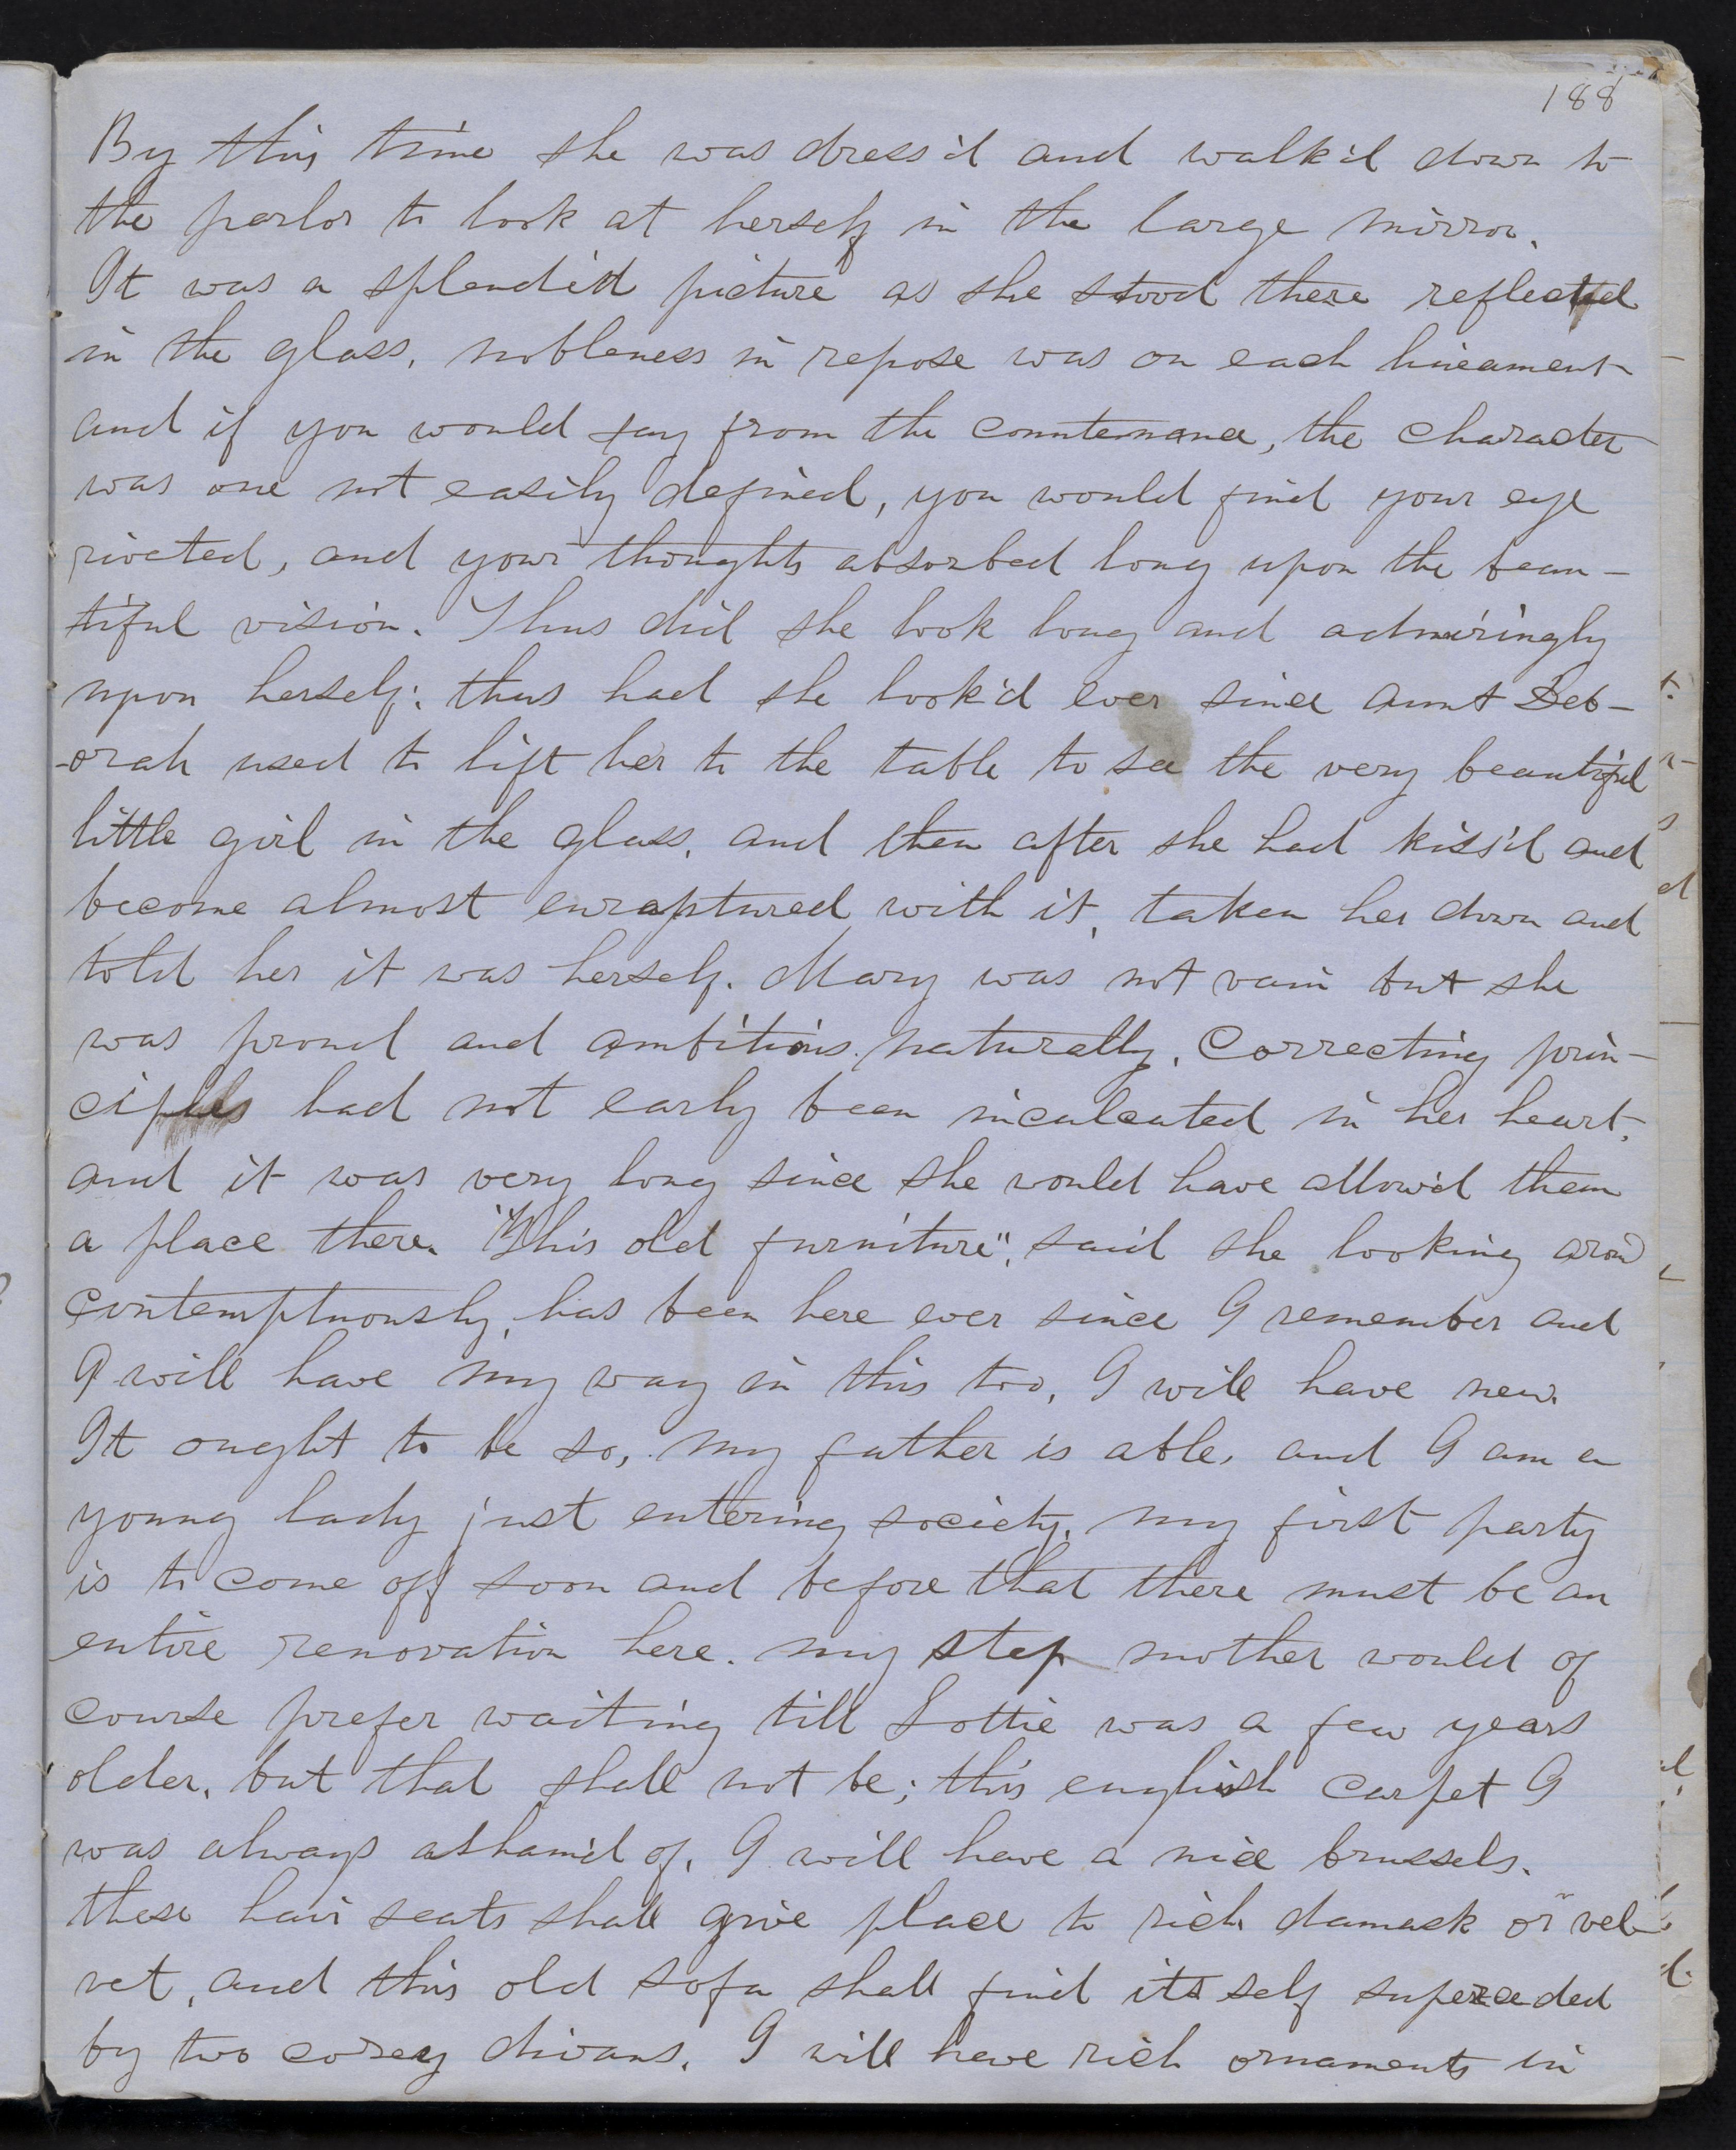 188
By this time she was dress'd and walk'd down to
the parlor to look at herself in the large mirror.
It was a splendid picture as she stood there reflected
in the glass, nobleness in repose was on each lineament
and if you would say from the countenance, the character
was one not easily defined, you would find your eye
riveted, and your thoughts absorbed long upon the beau-
tiful vision. Thus did she look long and admiringly
upon herself: thus had she look'd ever since aunt Deb-
-orah used to lift her to the table to see the very beautiful
little girl in the glass, and then after she had kiss'd and
become almost enraptured with it, taken her down and
told her it was herself. Mary was not vain but she
was proud and ambitious naturally. Correcting prin-
ciples had not early been inculcated in her heart,
and it was very long since she would have allow'd them
a place there. "This old furniture", said she looking aroud
contemptuously, has been here ever since I remember and
I will have my way in this too, I will have new.
It ought to be so, my father is able, and I am a
young lady just entering society, my first party
is to come off soon and before that there must be an
entire renovation here. my step mother would of
course prefer waiting till Lottie was a few years
older, but that shall not be; this english carpet I
was always asham'd of, I will have a nice brussels.
these hair seats shall give place to rich damask or vel-
vet, and this old sofa shall find its self superceded
by two cosey divans. I will have rich ornaments in